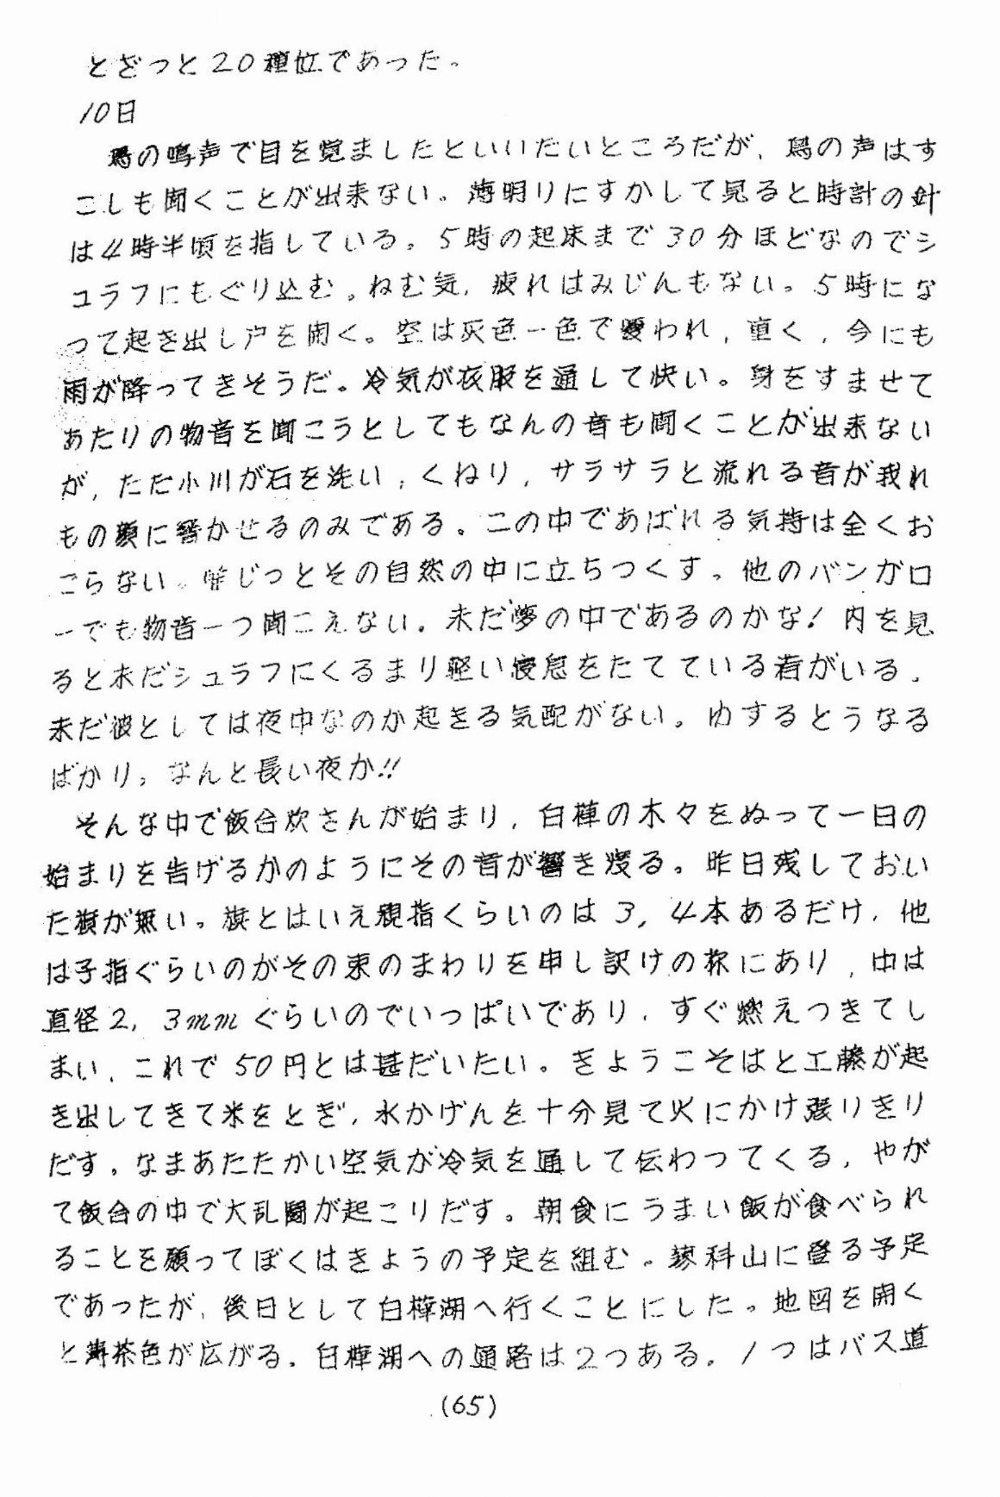 とざっと20種位であった。
10日
鳥の鳴声で目を覚ましたといいたいところだが、鳥の声はす
こしも聞くことが出来ない。薄明りにすかして見ると時計の針
は4時半頃を指している。5時の起床まで30分ほどなのでシ
ュラフにもぐり込む。ねむ気,疲れはみじんもない。5時にな
って起き出し戸を開く。空は灰色一色で覆われ,重く,今にも
雨が降ってきそうだ。冷気が衣服を通して快い。身をすませて
あたりの物音を聞こうとしてもなんの音も聞くことが出来ない
が,ただ小川が石を洗い,くねり,サラサラと流れる音が我れ
もの顔に響かせるのみである。この中であばれる気持は全くお
こらない。唯じっとその自然の中に立ちつくす。他のバンガロ
ーでも物音一つ聞こえない。未だ夢の中であるのかな!内を見
ると未だシュラフにくるまり軽い寝息をたてている者がいる。
未だ彼としては夜中なのか起きる気配がない。ゆするとうなる
ばかり。なんと長い夜か!!
そんな中で飯合炊さんが始まり,白樺の木々をぬって一日の
始まりを告げるかのようにその音が響き渡る。昨日残しておい
た薪が無い。薪とはいえ親指くらいのは3,4本あるだけ,他
は子指ぐらいのがその束のまわりを申し訳けの称にあり,中は
直径2,3mmぐらいのでいっぱいであり,すぐ燃えつきてし
まい,これで50円とは甚だいたい。きょうこそはと工藤が起
き出してきて米をとぎ,水かげんを十分見て火にかけ張りきり
だす。なまあたたかい空気が冷気を通して伝わってくる,やが
て飯合の中で大乱闘が起こりだす。朝食にうまい飯が食べられ
ることを願ってぼくはきょうの予定を組む。蓼科山に登る予定
であったが,後日として白樺湖へ行くことにした。地図を開く
と薄茶色が広がる。白樺湖への通路は2つある。1つはバス道
(65)